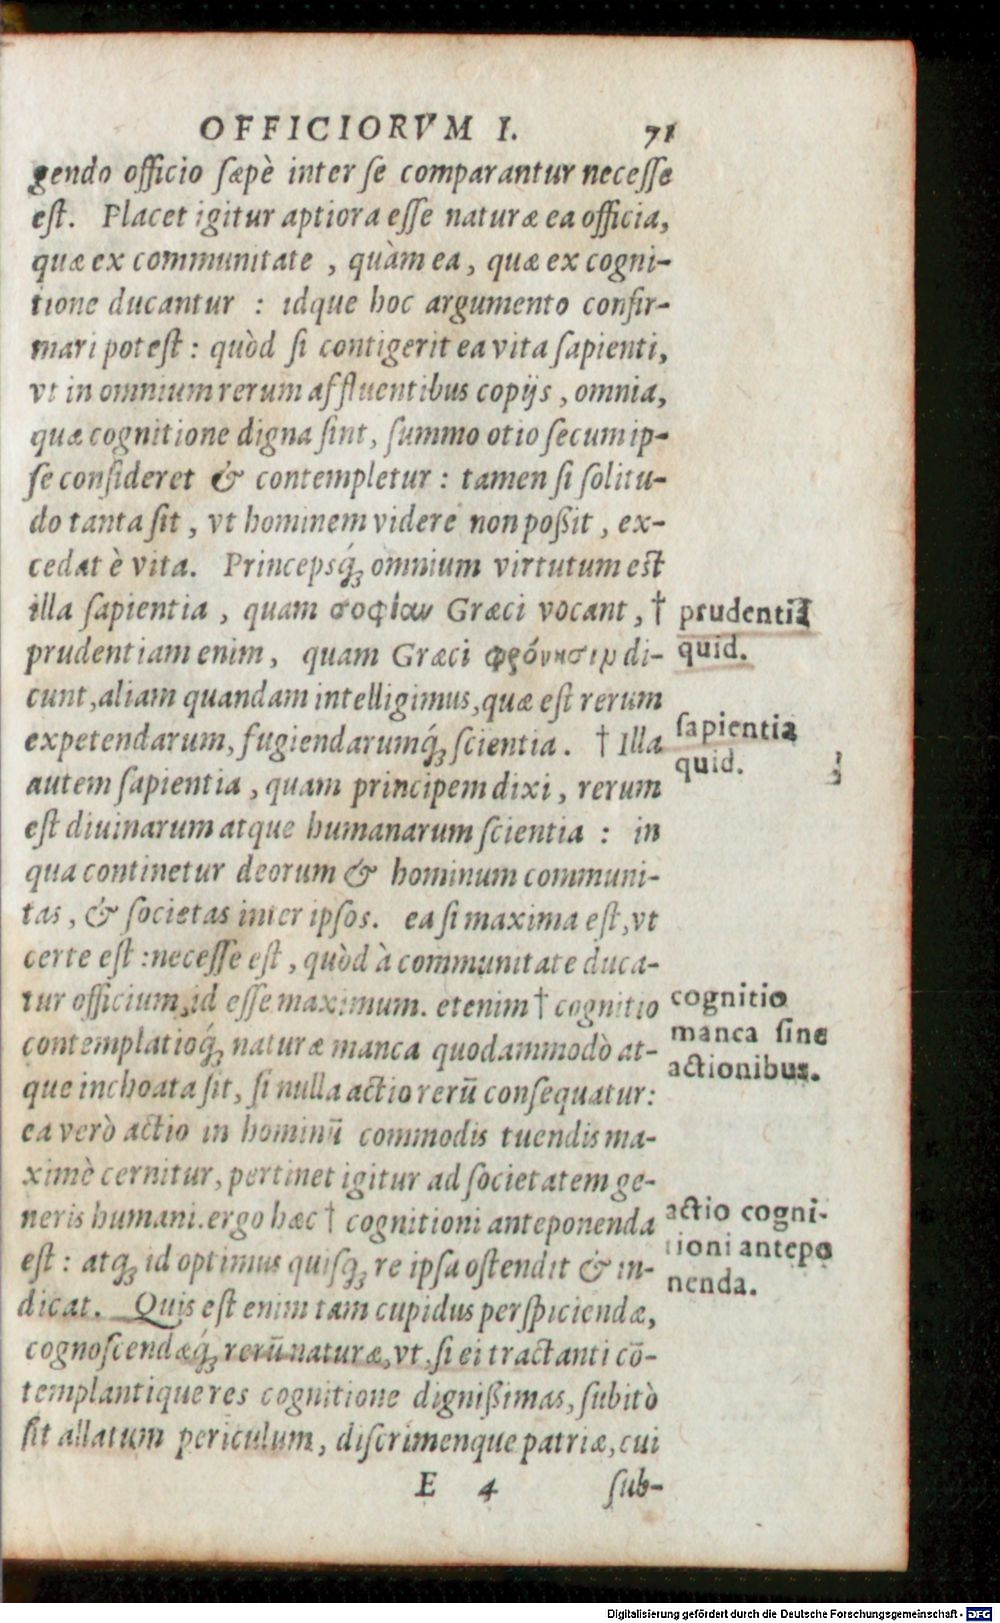 OFFICIORVM I. 71
gendo officio sæpè inter se comparantur necesse
est. Placet igitur aptiora esse naturæ ea officia,
quæ ex communitate , quàm ea , quæ ex cogni-
tione ducantur : idque hoc argumento confir-
mari potest : quòd si contigerit ea vita sapienti,
vt in omnium rerum affluentibus copijs , omnia,
quæ cognitione digna sint, summo otio secum ip-
se consideret & contempletur : tamen si solitu-
do tanta sit , vt hominem videre non poßit , ex-
cedat è vita. Princepsq́ꝫ omnium virtutum est
illa sapientia , quam σοφίαν Græci vocant , † prudentia
prudentiam enim, quam Græci φρόνησιν di- quid.
cunt, aliam quandam intelligimus, quæ est rerum
expetendarum, fugiendarumq́ꝫ scientia. † Illa sapientia
autem sapientia , quam principem dixi , rerum quid.
est diuinarum atque humanarum scientia : in
qua continetur deorum & hominum communi-
tas , & societas inter ipsos. ea si maxima est, vt
certe est : necesse est , quòd à communitate duca-
tur officium, id esse maximum. etenim † cognitio cognitio
contemplatioq́ꝫ naturæ manca quodammodò at- manca sine
que inchoata sit, si nulla actio rerū consequatur: actionibus.
ea verò actio in hominū commodis tuendis ma-
ximè cernitur, pertinet igitur ad societatem ge-
neris humani. ergo hæc † cognitioni anteponenda actio cogni-
est : atqꝫ id optimus quisqꝫ re ipsa ostendit & in- tioni antepo
dicat. Quis est enim tam cupidus perspiciendæ, nenda.
cognoscendæq́ꝫ rerū naturæ, vt, si ei tractanti cō-
templantique res cognitione dignißimas, subitò
sit allatum periculum, discrimenque patriæ, cui
E 4 sub-
Digitalisierung gefördert durch die Deutsche Forschungsgemeinschaft - DFG